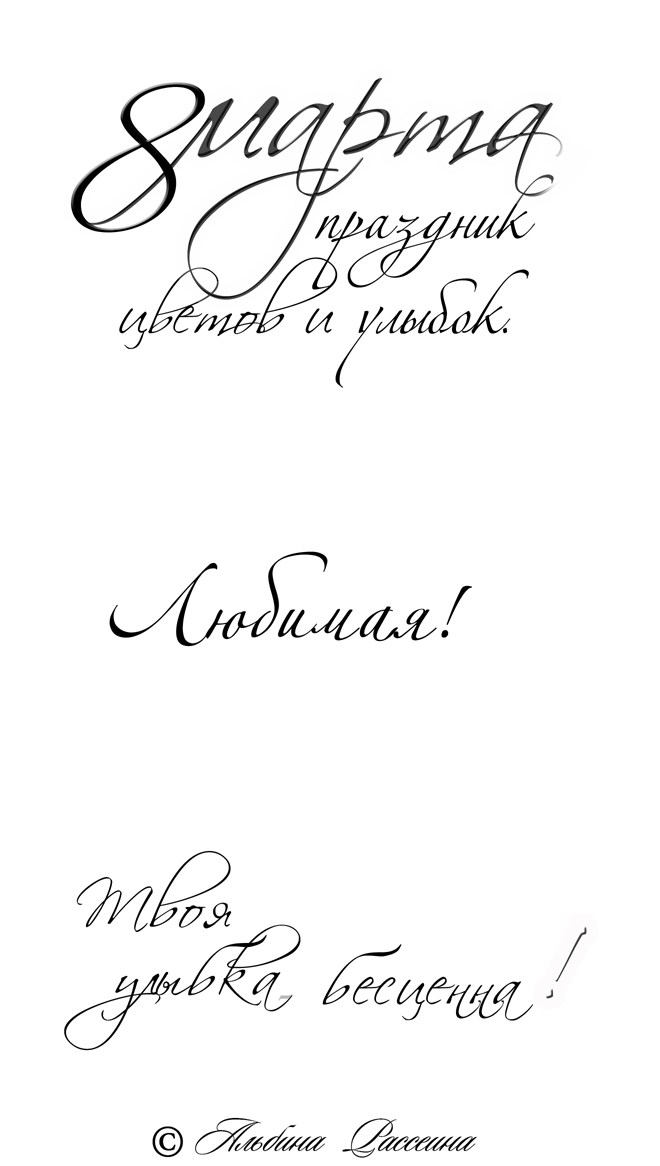 8 марта
праздник
цветов и улыбок.
Любимая!
Твоя
улыбка бесценна!
© Альбина Рассеина